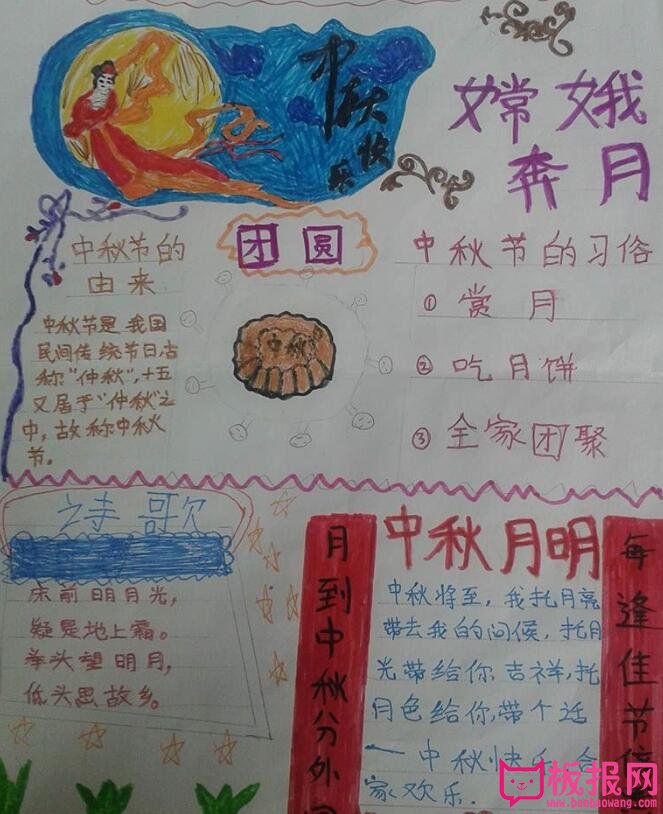 中秋
快
乐
嫦娥
奔月
中秋节的
由来
中秋节是我国
民间传统节日,古
称“仲秋”,十五
又居于“仲秋”之
中,故称中秋
节。
团圆
中秋
中秋节的习俗
① 赏月
② 吃月饼
③ 全家团聚
诗歌
床前明月光,
疑是地上霜。
举头望明月,
低头思故乡。
月到中秋分外
中秋月明
中秋将至,我托月亮
带去我的问候,托月
光带给你吉祥,托
月色给你带个话
一中秋快乐,合
家欢乐.
每逢佳节倍
板报网
www.banbaowang.com